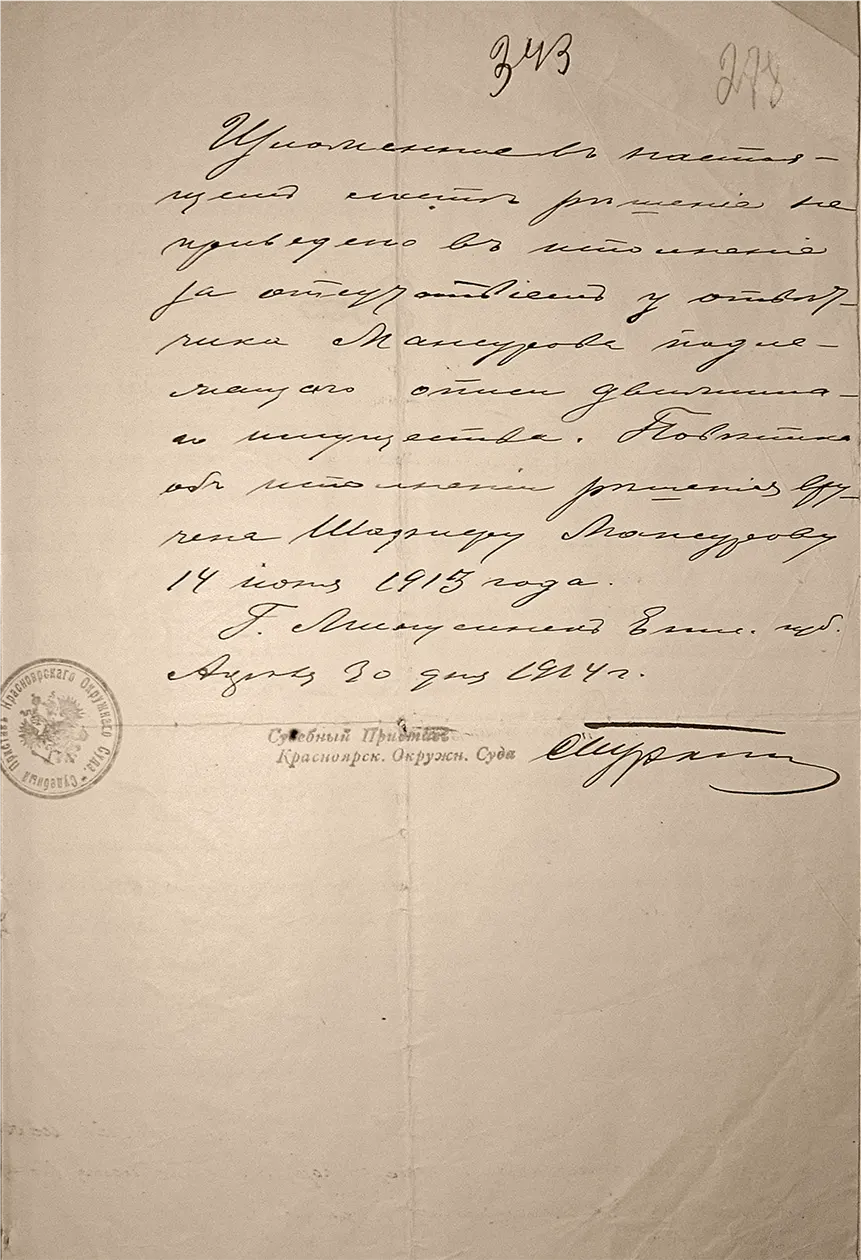 343
278
Изложенное въ настоя-
щемъ листѣ рѣшеніе не
приведено въ исполненіе
за отсутствіемъ у отвѣт-
чика Мансурова подле-
жащаго описи движима-
го имущества. Повѣстка
объ исполненіи рѣшенія вру-
чена Мансурову
14 іюня 1913 года.
Г. Минусинскъ Енис. губ.
Апрѣля 30 дня 1914 г.
Судебный Приставъ
Красноярск. Окружн. Суда
Судебный Приставъ Красноярскаго Окружнаго Суда.